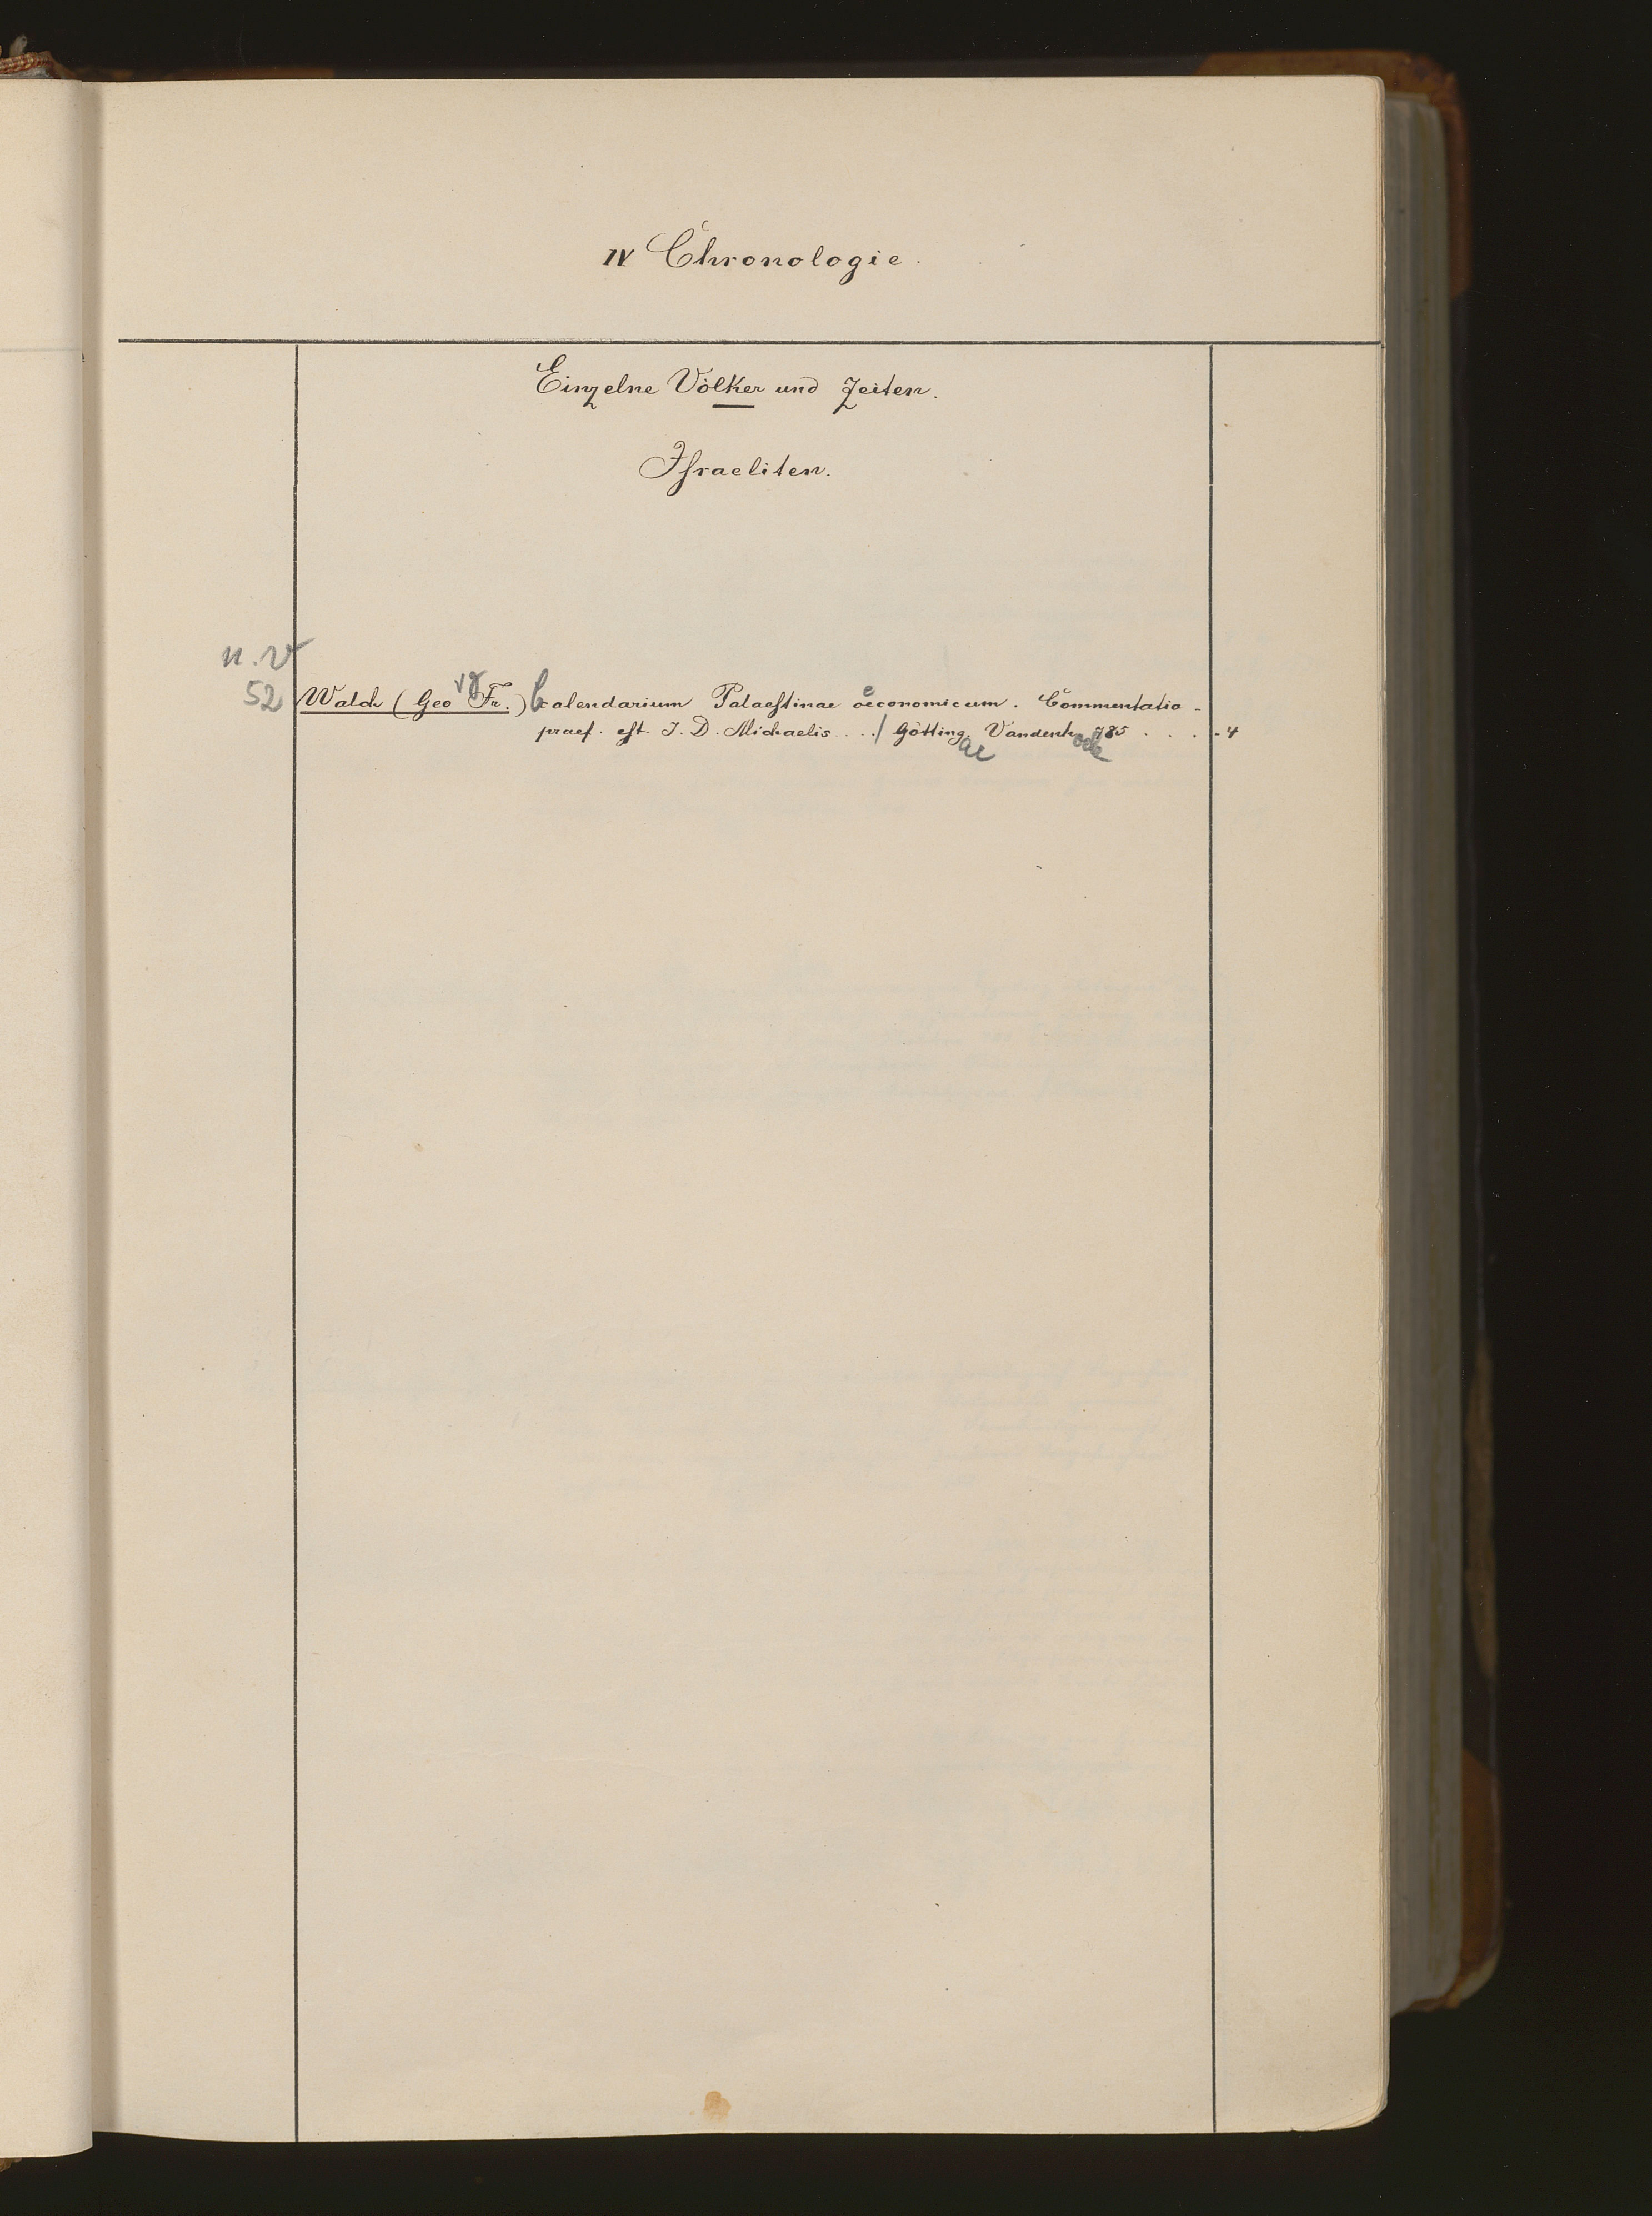 IV Chronologie.
Einzelne Völker und Zeiten.
Israeliten.
n.v
52 Walch (Geo Fr.) Calendarium Palaestinae oeconomicum. Commentatio
praef. est J. D. Michaelis . . . / Götting.ae Vandenhoek 785 . . . . 4